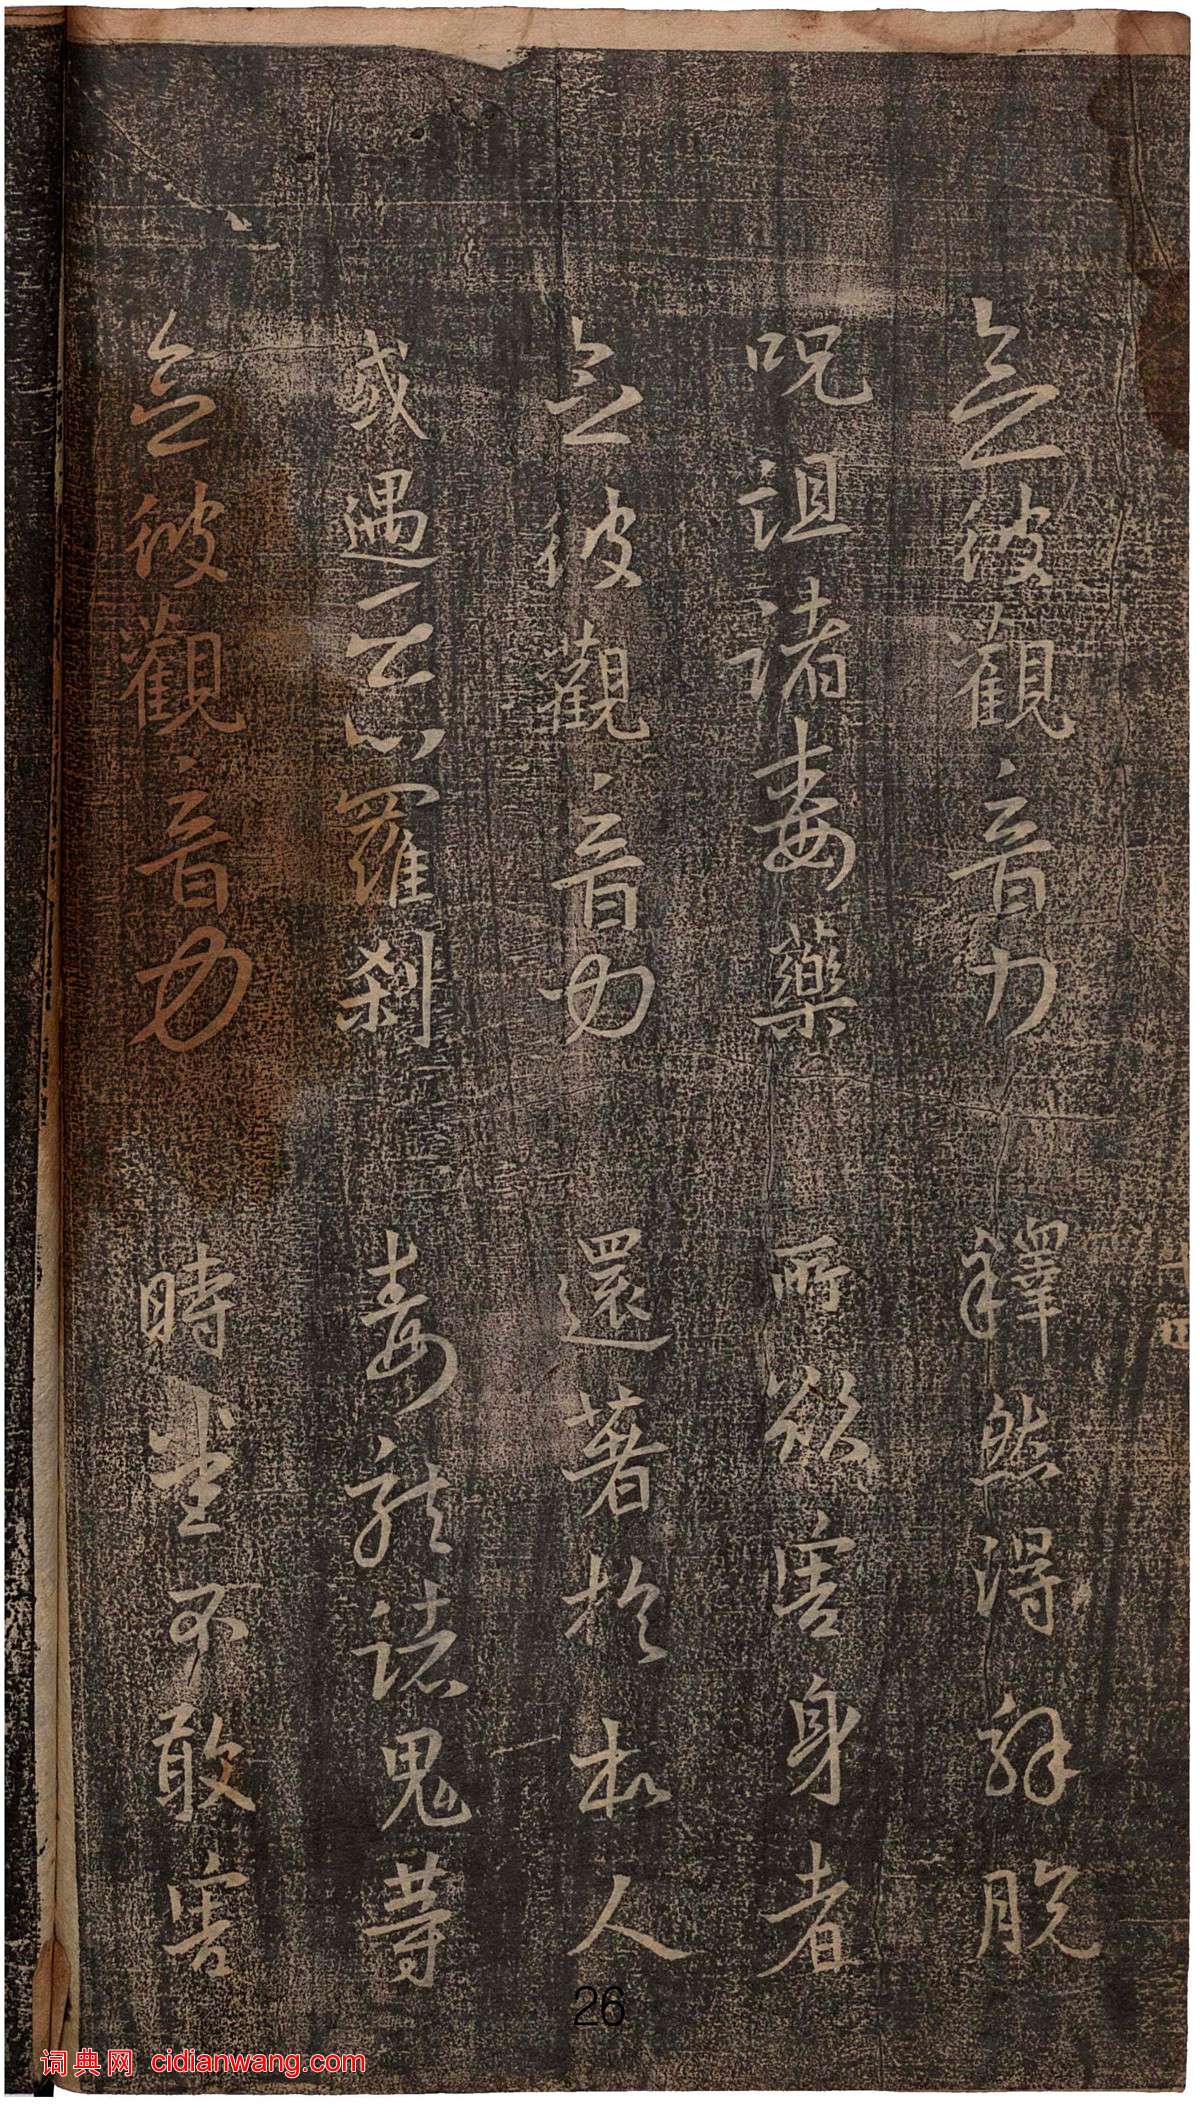 念彼觀音力 釋然得解脫
呪詛諸毒藥 所欲害身者
念彼觀音力 還著於本人
或遇惡羅剎 毒龍諸鬼等
念彼觀音力 時悉不敢害
26
词典网 cidianwang.com